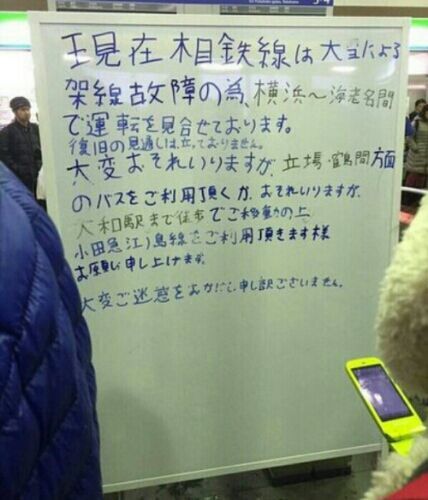 現在相鉄線は大雪による
架線故障の為、横浜〜海老名間
で運転を見合せております。
復旧の見通しは立っておりません。
大変おそれいりますが、立場・鶴間方面
のバスをご利用頂くか、おそれいりますが、
大和駅まで徒歩でご移動の上
小田急江ノ島線をご利用頂きます様
お願い申し上げます。
大変ご迷惑をおかけし申し訳ございません。